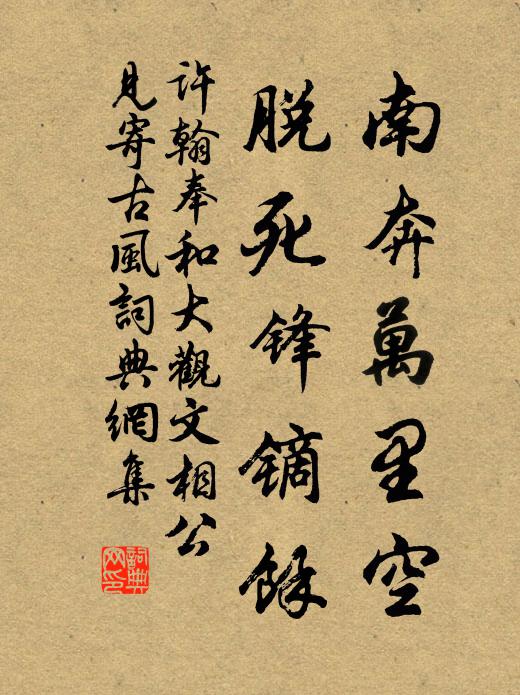 南奔萬里空
脱死鋒鏑餘
許翰奉和大觀文相公
見寄古風詞典網集
詞典网印